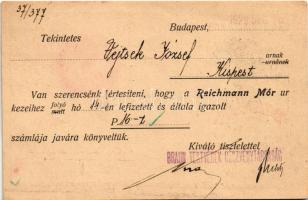 37/377
Budapest,
Tekintetes
Vejtsek József
urnak
urnának
Kispest
Van szerencsénk értesíteni, hogy a Reichmann Mór ur
kezeihez folyó mult hó 14-én lefizetett és általa igazolt
P 16-
számlája javára könyveltük.
Kiváló tisztelettel
BRAUN TESTVÉREK RÉSZVÉNYTÁRSASÁG